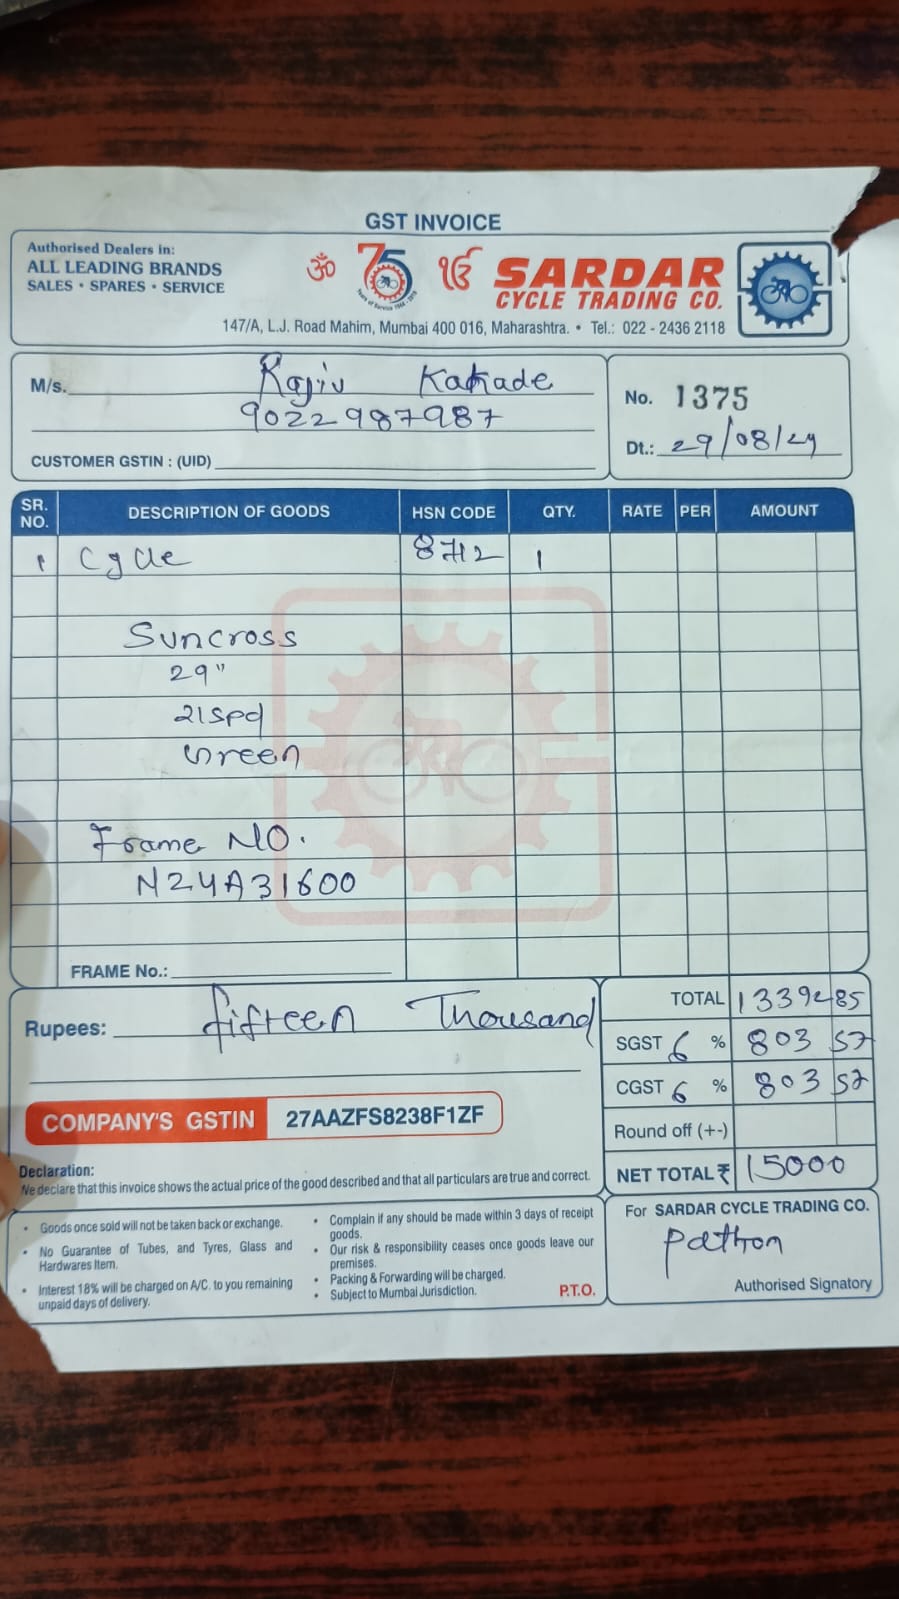 GST INVOICE
Authorised Dealers in:
ALL LEADING BRANDS
SALES • SPARES • SERVICE
ॐ 75 ੴ SARDAR
Years of Service
CYCLE TRADING CO.
147/A, L.J. Road Mahim, Mumbai 400 016, Maharashtra. • Tel.: 022 - 2436 2118
M/s. Rajiv Kakade
9022987987
CUSTOMER GSTIN : (UID)
No. 1375
Dt.: 29/08/24
SR. NO. DESCRIPTION OF GOODS HSN CODE QTY. RATE PER AMOUNT
1 Cycle 8712 1
Suncross
29"
21spd
Green
Frame NO.
N24A31600
FRAME No.:
Rupees: fifteen Thousand
TOTAL 13392 85
SGST 6 % 803 57
CGST 6 % 803 57
Round off (+-)
NET TOTAL ₹ 15000
COMPANY'S GSTIN 27AAZFS8238F1ZF
Declaration:
We declare that this invoice shows the actual price of the good described and that all particulars are true and correct.
• Goods once sold will not be taken back or exchange.
• No Guarantee of Tubes, and Tyres, Glass and
Hardwares Item.
• Interest 18% will be charged on A/C. to you remaining
unpaid days of delivery.
• Complain if any should be made within 3 days of receipt
goods.
• Our risk & responsibility ceases once goods leave our
premises.
• Packing & Forwarding will be charged.
• Subject to Mumbai Jurisdiction.
P.T.O.
For SARDAR CYCLE TRADING CO.
Authorised Signatory